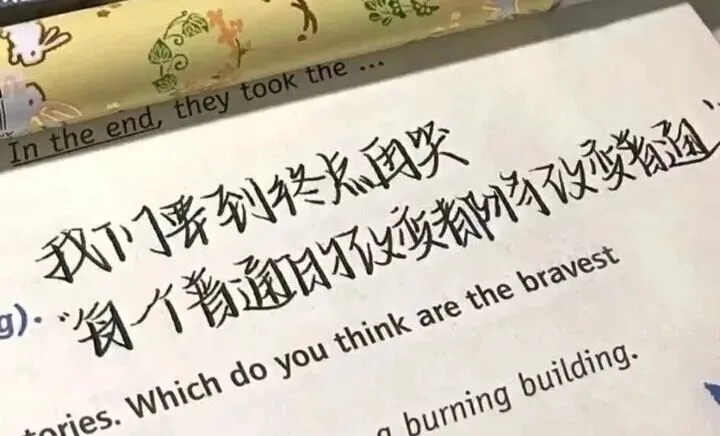 In the end, they took the ...
我们要到终点再哭
g). "每一个普通的改变都将改变普通"
tories. Which do you think are the bravest
a burning building.